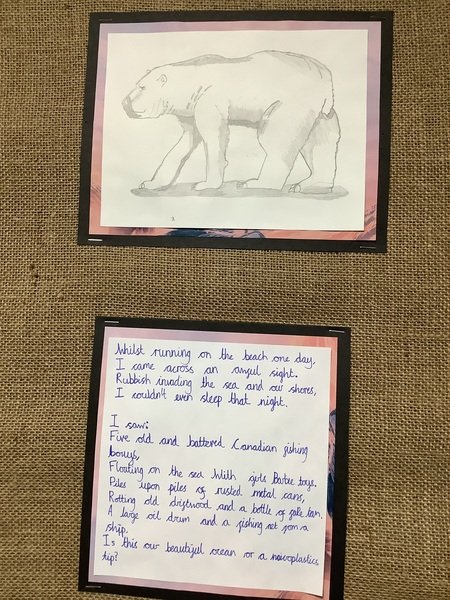 Whilst running on the beach one day,
I came across an awful sight.
Rubbish invading the sea and our shores,
I couldn't even sleep that night.
I saw:
Five old and battered Canadian fishing
bouys,
Floating on the sea With girls Barbie toys.
Piles upon piles of rusted metal cans,
Rotting old driftwood and a bottle of fake tan,
A large oil drum and a fishing net from a
ship.
Is this our beautiful ocean or a microplastics
tip?